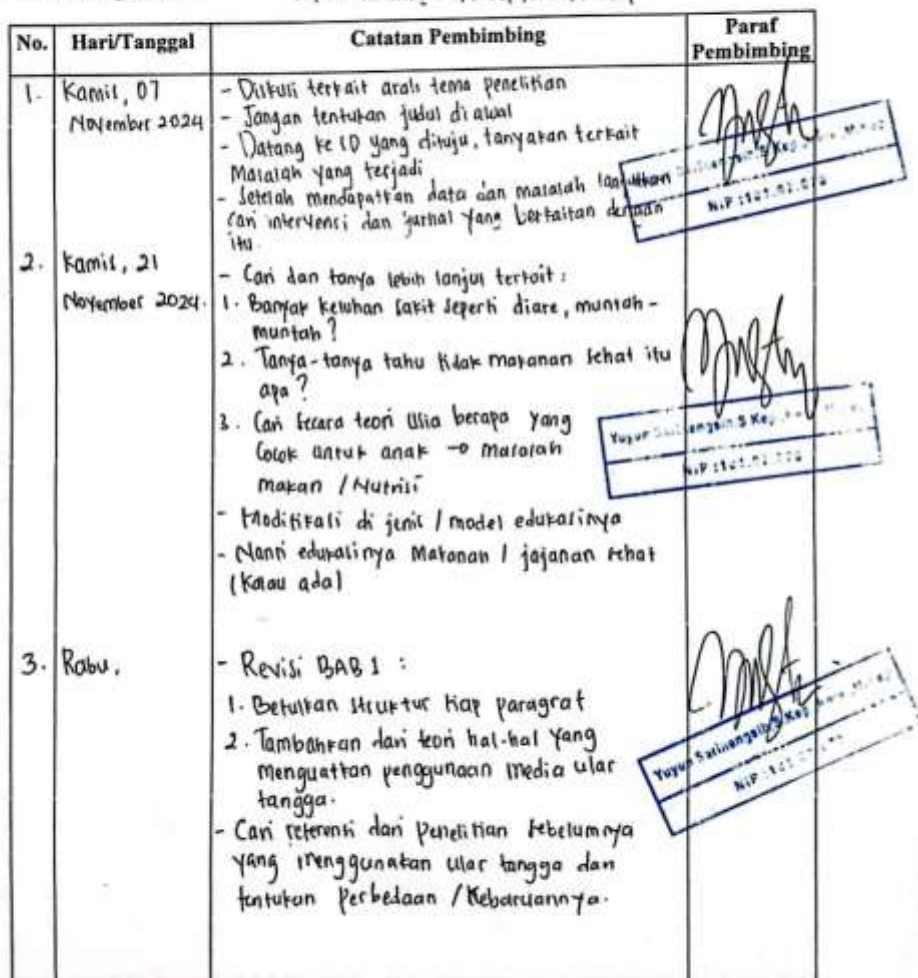 No. Hari/Tanggal Catatan Pembimbing Paraf Pembimbing
1. Kamis, 07 November 2024
- Diskusi terkait arah tema penelitian
- Jangan tentukan judul di awal
- Datang ke SD yang dituju, tanyakan terkait
Masalah yang terjadi
- Setelah mendapatkan data dan masalah lanjutkan
cari intervensi dan jurnal yang berkaitan dengan
itu.
2. Kamis, 21 November 2024.
- Cari dan tanya lebih lanjut terkait :
1. Banyak keluhan sakit seperti diare, muntah-
muntah ?
2. Tanya-tanya tahu tidak makanan sehat itu
apa ?
3. Cari secara teori Usia berapa yang
Cocok untuk anak → masalah
makan / Nutrisi
- Modifikasi di jenis / model edukasinya
- Nanti edukasinya Makanan / jajanan sehat
(Kalau ada)
3. Rabu,
- Revisi BAB 1 :
1. Betulkan struktur tiap paragraf
2. Tambahkan dari teori hal-hal yang
menguatkan penggunaan media ular
tangga.
- Cari referensi dari Penelitian sebelumnya
yang menggunakan ular tangga dan
tentukan Perbedaan / Kebaruannya.